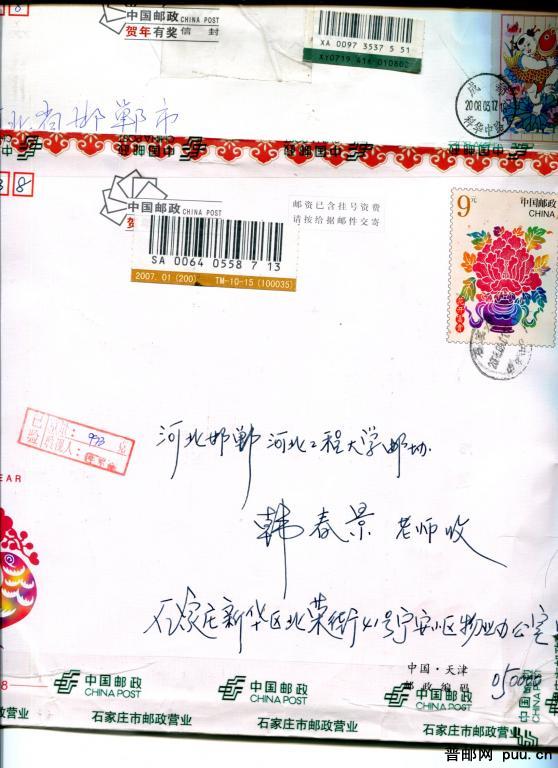 中国邮政
CHINA POST
贺年有奖 信封
XA 0097 3537 5 51
XY0719 41A 010802
2008.03.17
科华中路
河北省邯郸市
中国邮政 CHINA POST
贺年
SA 0064 0558 7 13
2007. 01 (200) TM-10-15 (100035)
邮资已含挂号资费
请按给据邮件交寄
9元
中国邮政
CHINA
花开富贵
河北邯郸 河北工程大学邮协
韩春景 老师收
石家庄新华区北荣街41号宁安小区物业办公室
中国·天津
邮政编码 050000
中国邮政
CHINA POST
中国邮政
CHINA POST
中国邮政
CHINA POST
中国邮政
CHINA POST
石家庄市邮政营业
石家庄市邮政营业
石家庄市邮政营业
普邮网 puu.cn